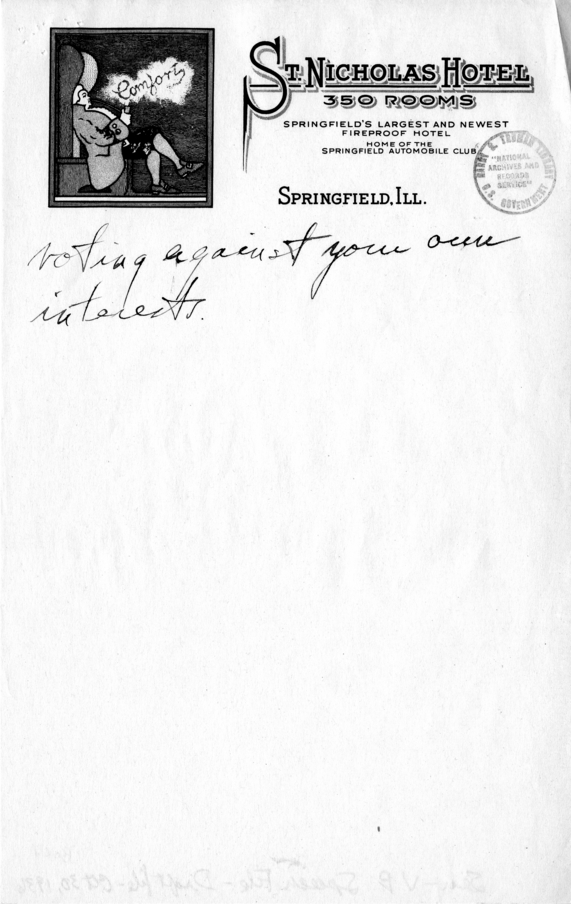 Comfort
ST. NICHOLAS HOTEL
350 ROOMS
SPRINGFIELD'S LARGEST AND NEWEST
FIREPROOF HOTEL
HOME OF THE
SPRINGFIELD AUTOMOBILE CLUB
HARRY S. TRUMAN LIBRARY
"NATIONAL
ARCHIVES AND
RECORDS
SERVICE"
U.S. GOVERNMENT
SPRINGFIELD, ILL.
voting against your own
interests.